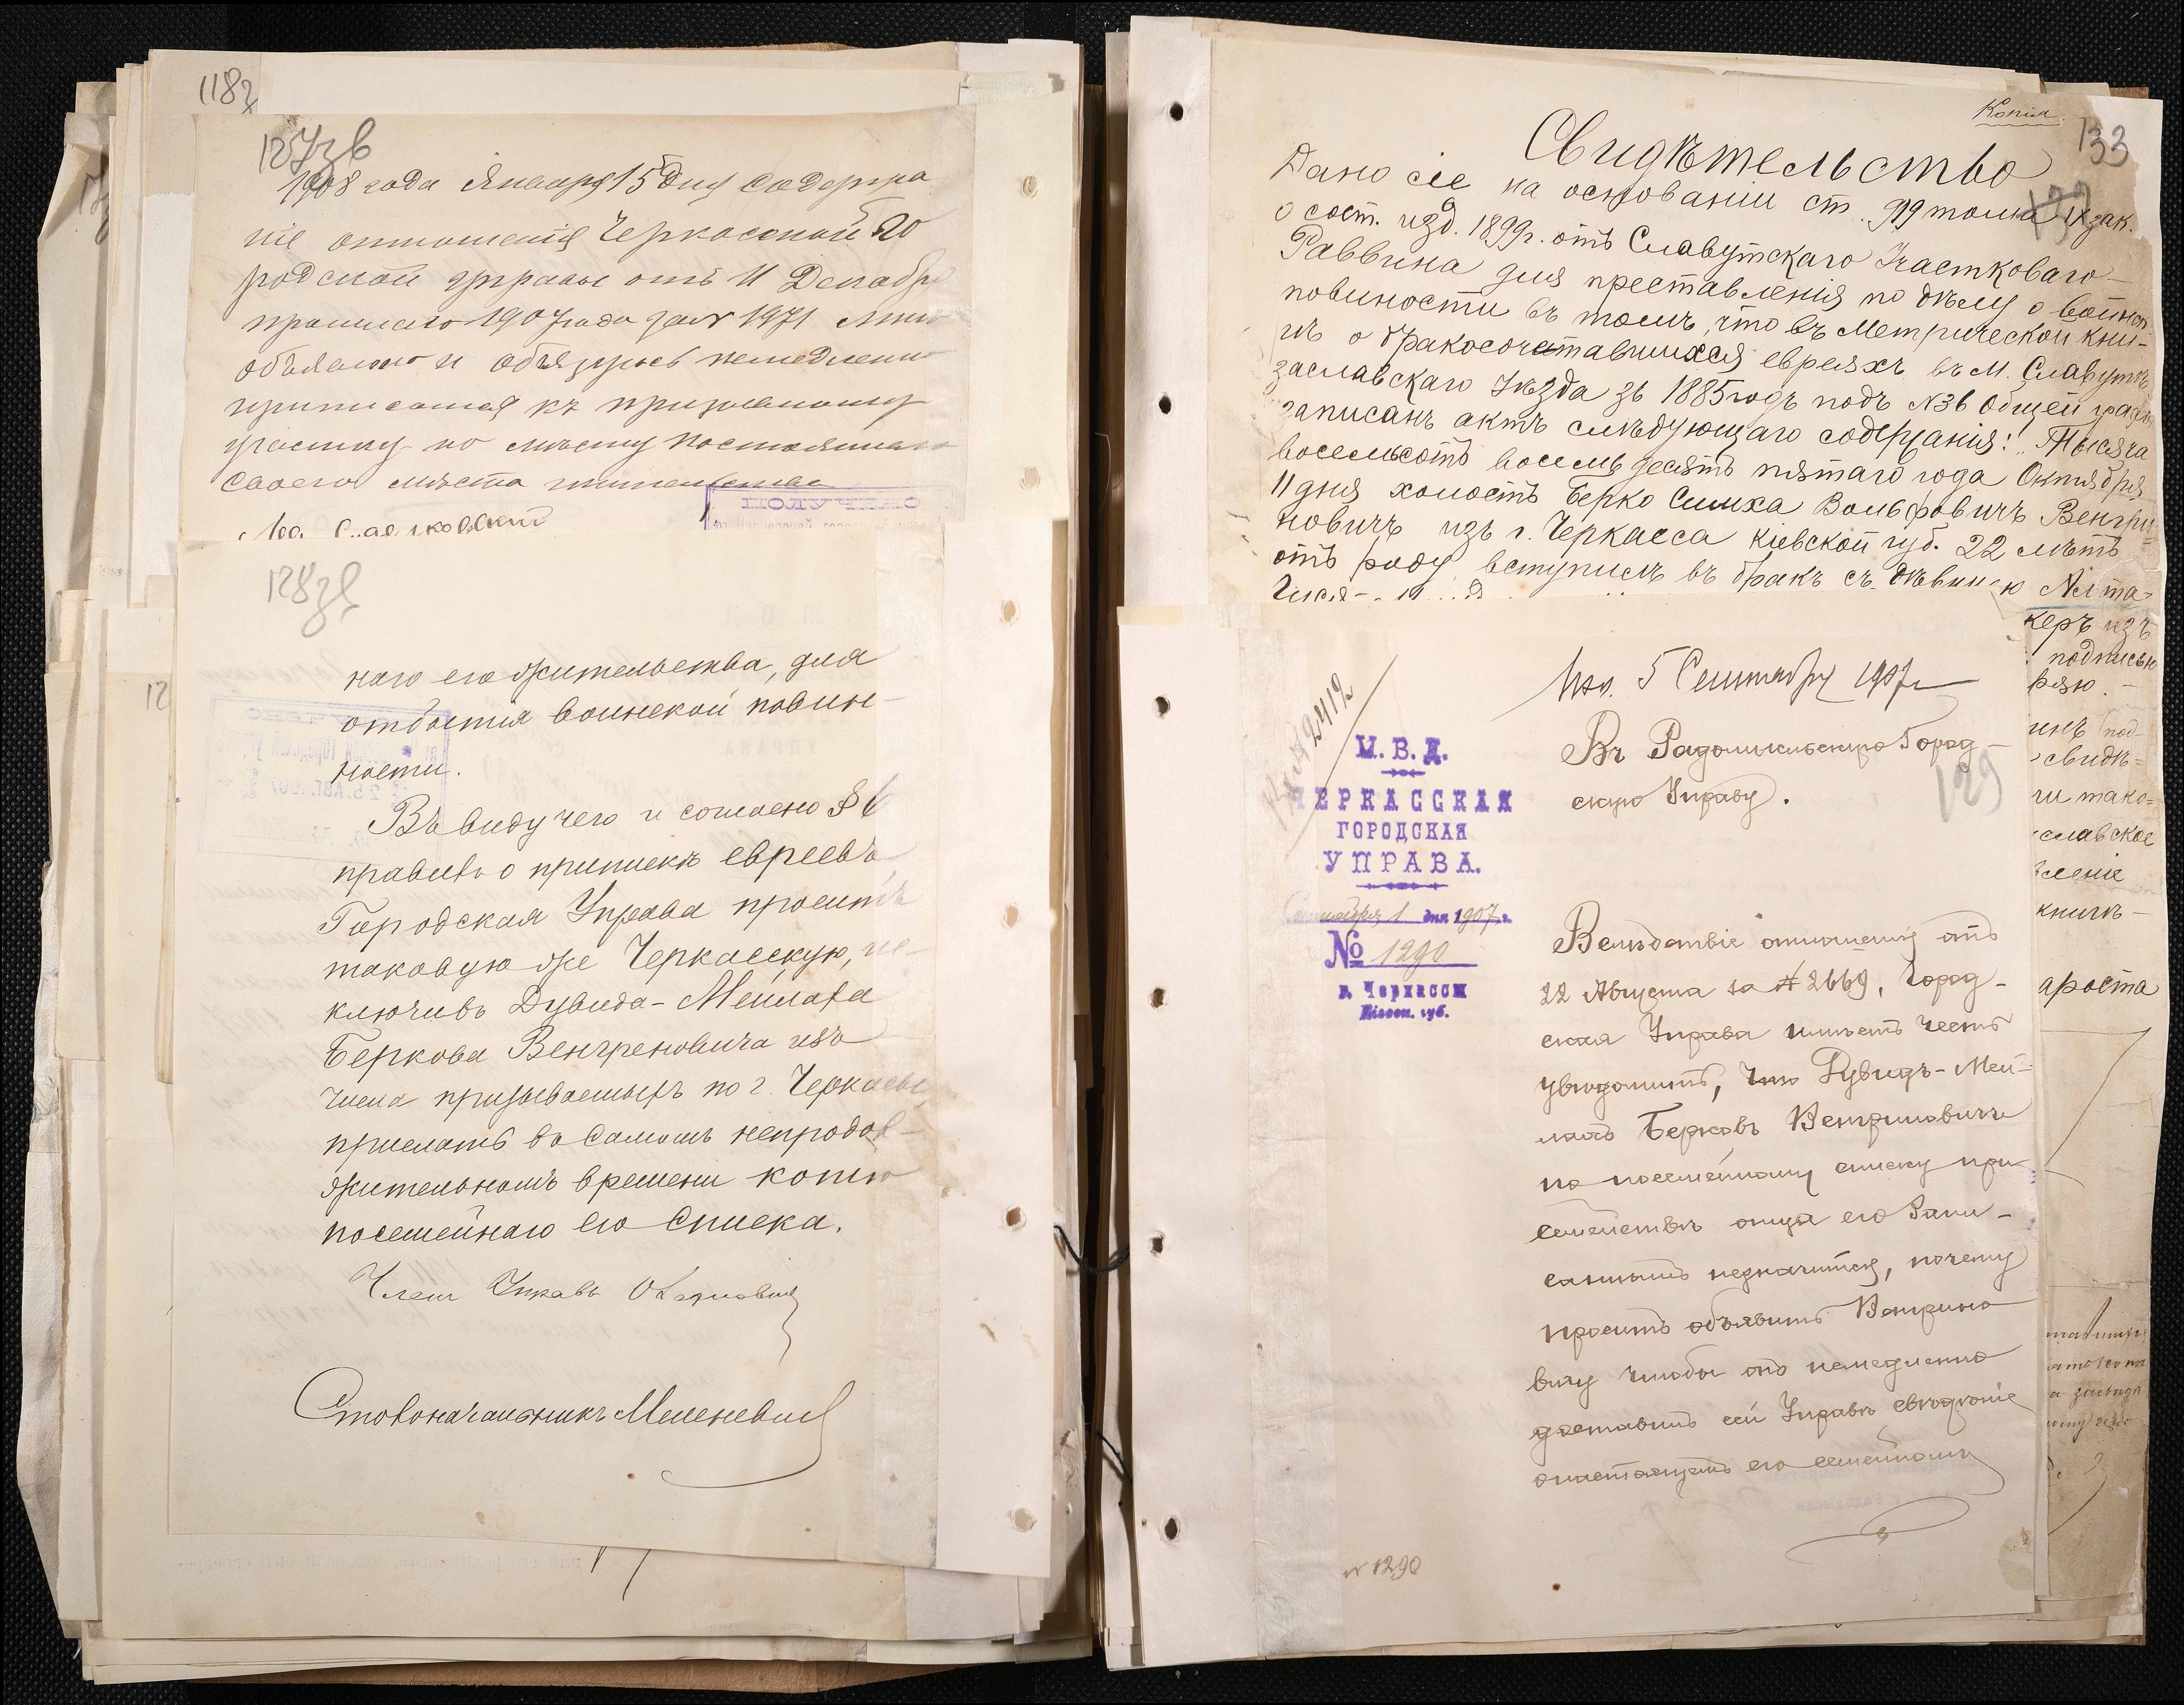 118
127зв
1908 года Января 15 дня содержа
ніе отношенія Черкасской Го
родской управы отъ 11 Декабр
прошлаго 1907 года за № 1971 мнѣ
объявлено и обязуюсь немедленно
приписаться къ призывному
участку по мѣсту постояннаго
своего мѣста жительства
128зв
наго его жительства, для
отбытія воинской повин-
ности.
Въ виду чего и согласно § 6
правилъ о припискѣ евреевъ,
Городская Управа проситъ
таковую же Черкасскую, ис-
ключивъ Дувида-Мейлаха
Беркова Венгреновича изъ
числа призываемыхъ по г. Черкассы,
прислать въ самомъ непродол-
жительномъ времени копію
посемейнаго его списка.
Членъ Управы
Столоначальникъ
Копія.
133
Свидѣтельство
Дано сіе на основаніи ст. 919 тома IX зак.
о сост. изд. 1899 г. отъ Славутскаго Участковаго
Раввина для преставленія по дѣлу о воинск.
повиности въ томъ, что въ Метрической кни-
гѣ о бракосочетавшихся евреяхъ въ м. Славутѣ
Заславскаго Уѣзда зв 1885 годъ подъ №36 общей графы
записанъ актъ слѣдующаго содержанія: "Тысяча
восемьсотъ восемьдесятъ пятаго года Октября
11 дня холостъ Берко Симха Вольфовичъ Венгри-
новичъ изъ г. Черкасса Кіевской губ. 22 лѣтъ
отъ роду вступилъ въ бракъ съ дѣвицею Алта-
керъ изъ
подписью
ряю.
инъ под-
свидѣ=
ти тако=
славское
вленіе
книгѣ-
ароста
5 Сентября 1907 г.
Въ Радомысльскую Город-
скую Управу.
129
Вх. № 2412
М. В. Д.
ЧЕРКАССКАЯ
ГОРОДСКАЯ
УПРАВА.
Сентября 1 дня 1907 г.
№ 1290
г. Черкассы
Кіевск. губ.
Вслѣдствіе отношенія отъ
22 Августа за № 2669, Город-
ская Управа имѣетъ честь
увѣдомить, что Дувидъ-Мей-
лахъ Берковъ Венгриновичъ
по посемейному списку при
семействѣ отца его запи-
саннымъ незначится, почему
проситъ объявить Венгрино
вичу чтобы онъ немедленно
доставилъ сей Управѣ свѣдѣніе
онастоящемъ его семейномъ
№ 1290